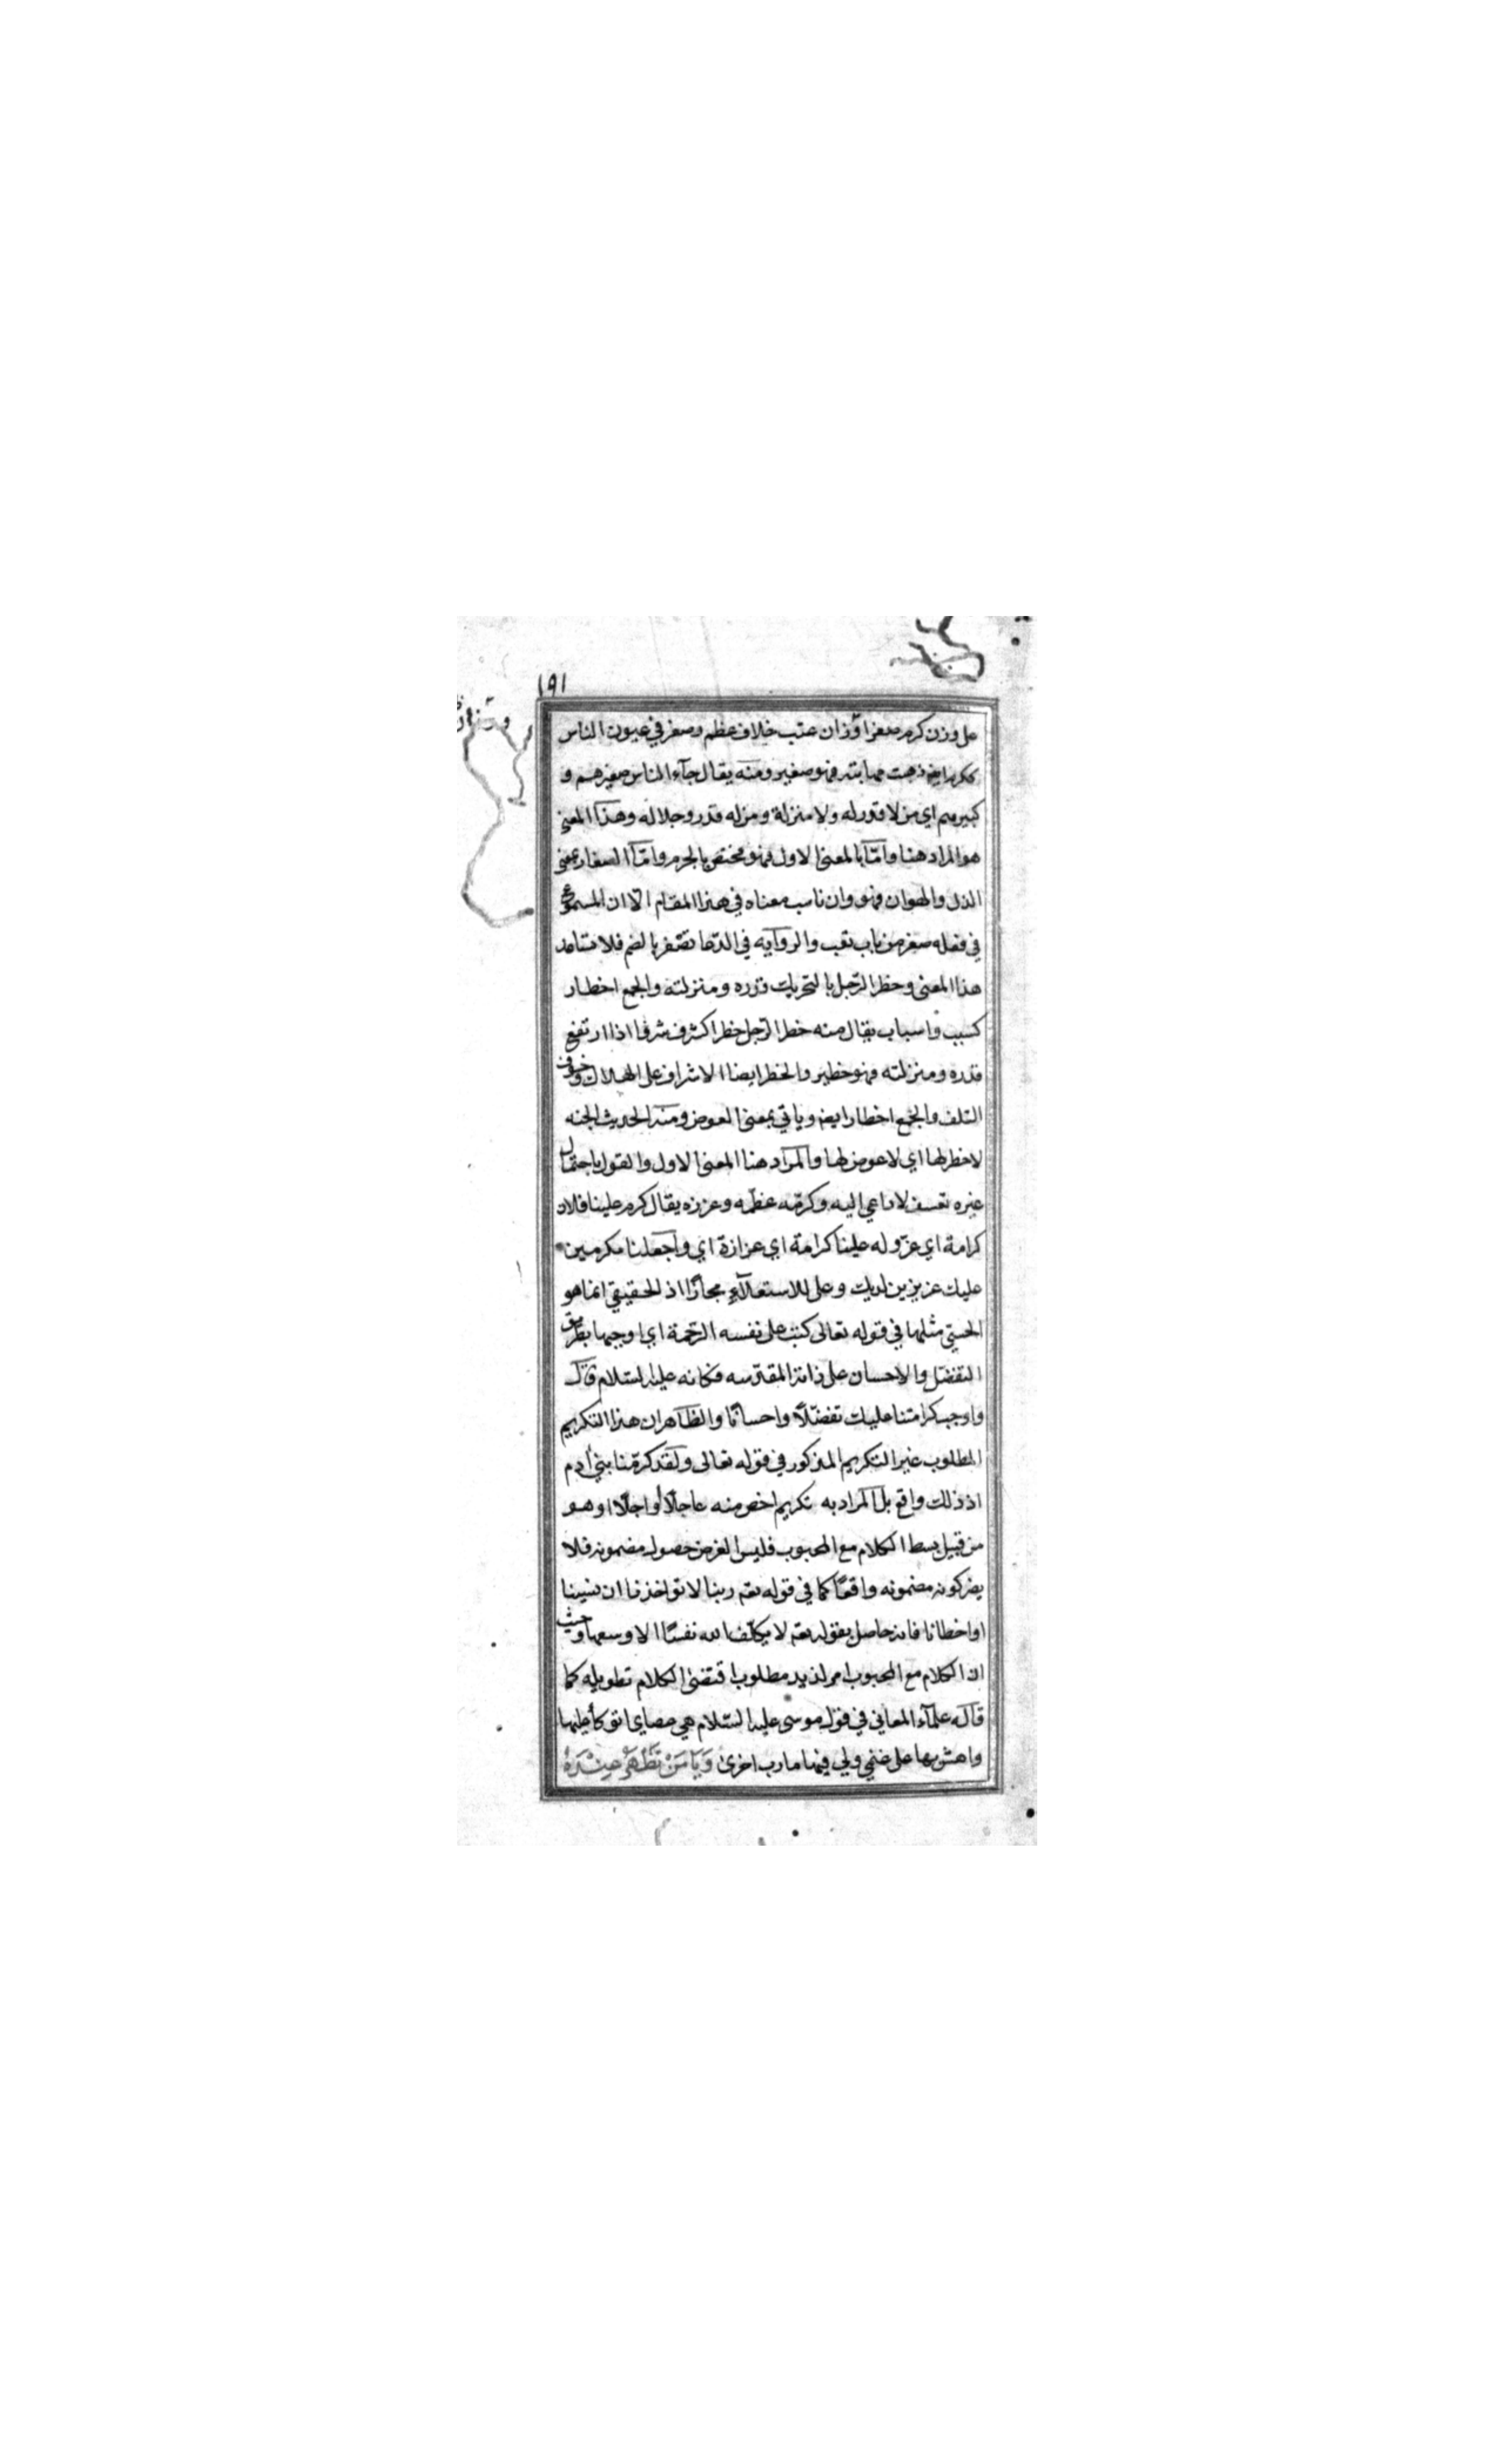 ١٩١
على وزن كرم صغرا وزان عنب خلاف عظم وصغر في عيون الناس
ككرم ايضا ذهبت مهابته فهو صغير ومنه يقال جآء الناس صغيرهم و
كبيرهم اي من لا قدر له ولا منزلة ومن له قدر وجلاله وهذا المعنى
هو المراد هنا وامّا بالمعنى الاول فهو مختص بالجرم وامّا الصغار بمعنى
الذل والهوان فهو وان ناسب معناه في هذا المقام الّا ان المسموع
في فعله صغر من باب تعب والرواية في الدّعا تصغر بالضم فلا تساعد
هذا المعنى وخطر الرّجل بالتحريك قدره ومنزلته والجمع اخطار
كسبب واسباب يقال منه خطر الرّجل خطرا كشرف شرفا اذا ارتفع
قدره ومنزلته فهو خطير والخطر ايضا الاشراف على الهلاك وخوف
التلف والجمع اخطار ايضا وياتي بمعنى العوض ومنه الحديث الجنه
لا خطر لها اي لا عوض لها والمراد هنا المعنى الاول والقول باحتمال
غيره تعسف لا داعي اليه وكرمّه عظّمه وعززه يقال كرم علينا فلان
كرامة اي عزّ وله علينا كرامة اي عزازة اي واجعلنا مكرمين
عليك عزيزين لديك وعلى للاستعلآء مجازًا اذ الحقيقي انما هو
الحسّي مثلها في قوله تعالى كتب على نفسه الرّحمة اي اوجبها بطريق
التفضّل والاحسان على ذاته المقدّسه فكانه عليه السّلام قال
واوجب كرامتنا عليك تفضّلًا واحسانًا والظاهر ان هذا التكريم
المطلوب غير التكريم المذكور في قوله تعالى ولقد كرمّنا بني ادم
اذ ذلك واقع بل المراد به تكريم اخص منه عاجلًا واجلًا او هو
من قبيل بسط الكلام مع المحبوب فليس الغرض حصول مضمونه فلا
يضر كون مضمونه واقعًا كما في قوله تعم ربنا لا تواخذنا ان نسينا
او اخطانا فانه حاصل بقوله تعم لا يكلّف الله نفسًا الا وسعها وحيث
ان الكلام مع المحبوب امر لذيد مطلوب اقتضى الكلام تطويله كما
قاله علمآء المعاني في قول موسى عليه السّلام هي عصاي اتوكأ عليها
واهش بها على غنمي ولي فيها مارب اخرى وَيَا مَنْ تَظْهَرُ عِنْدَهُ